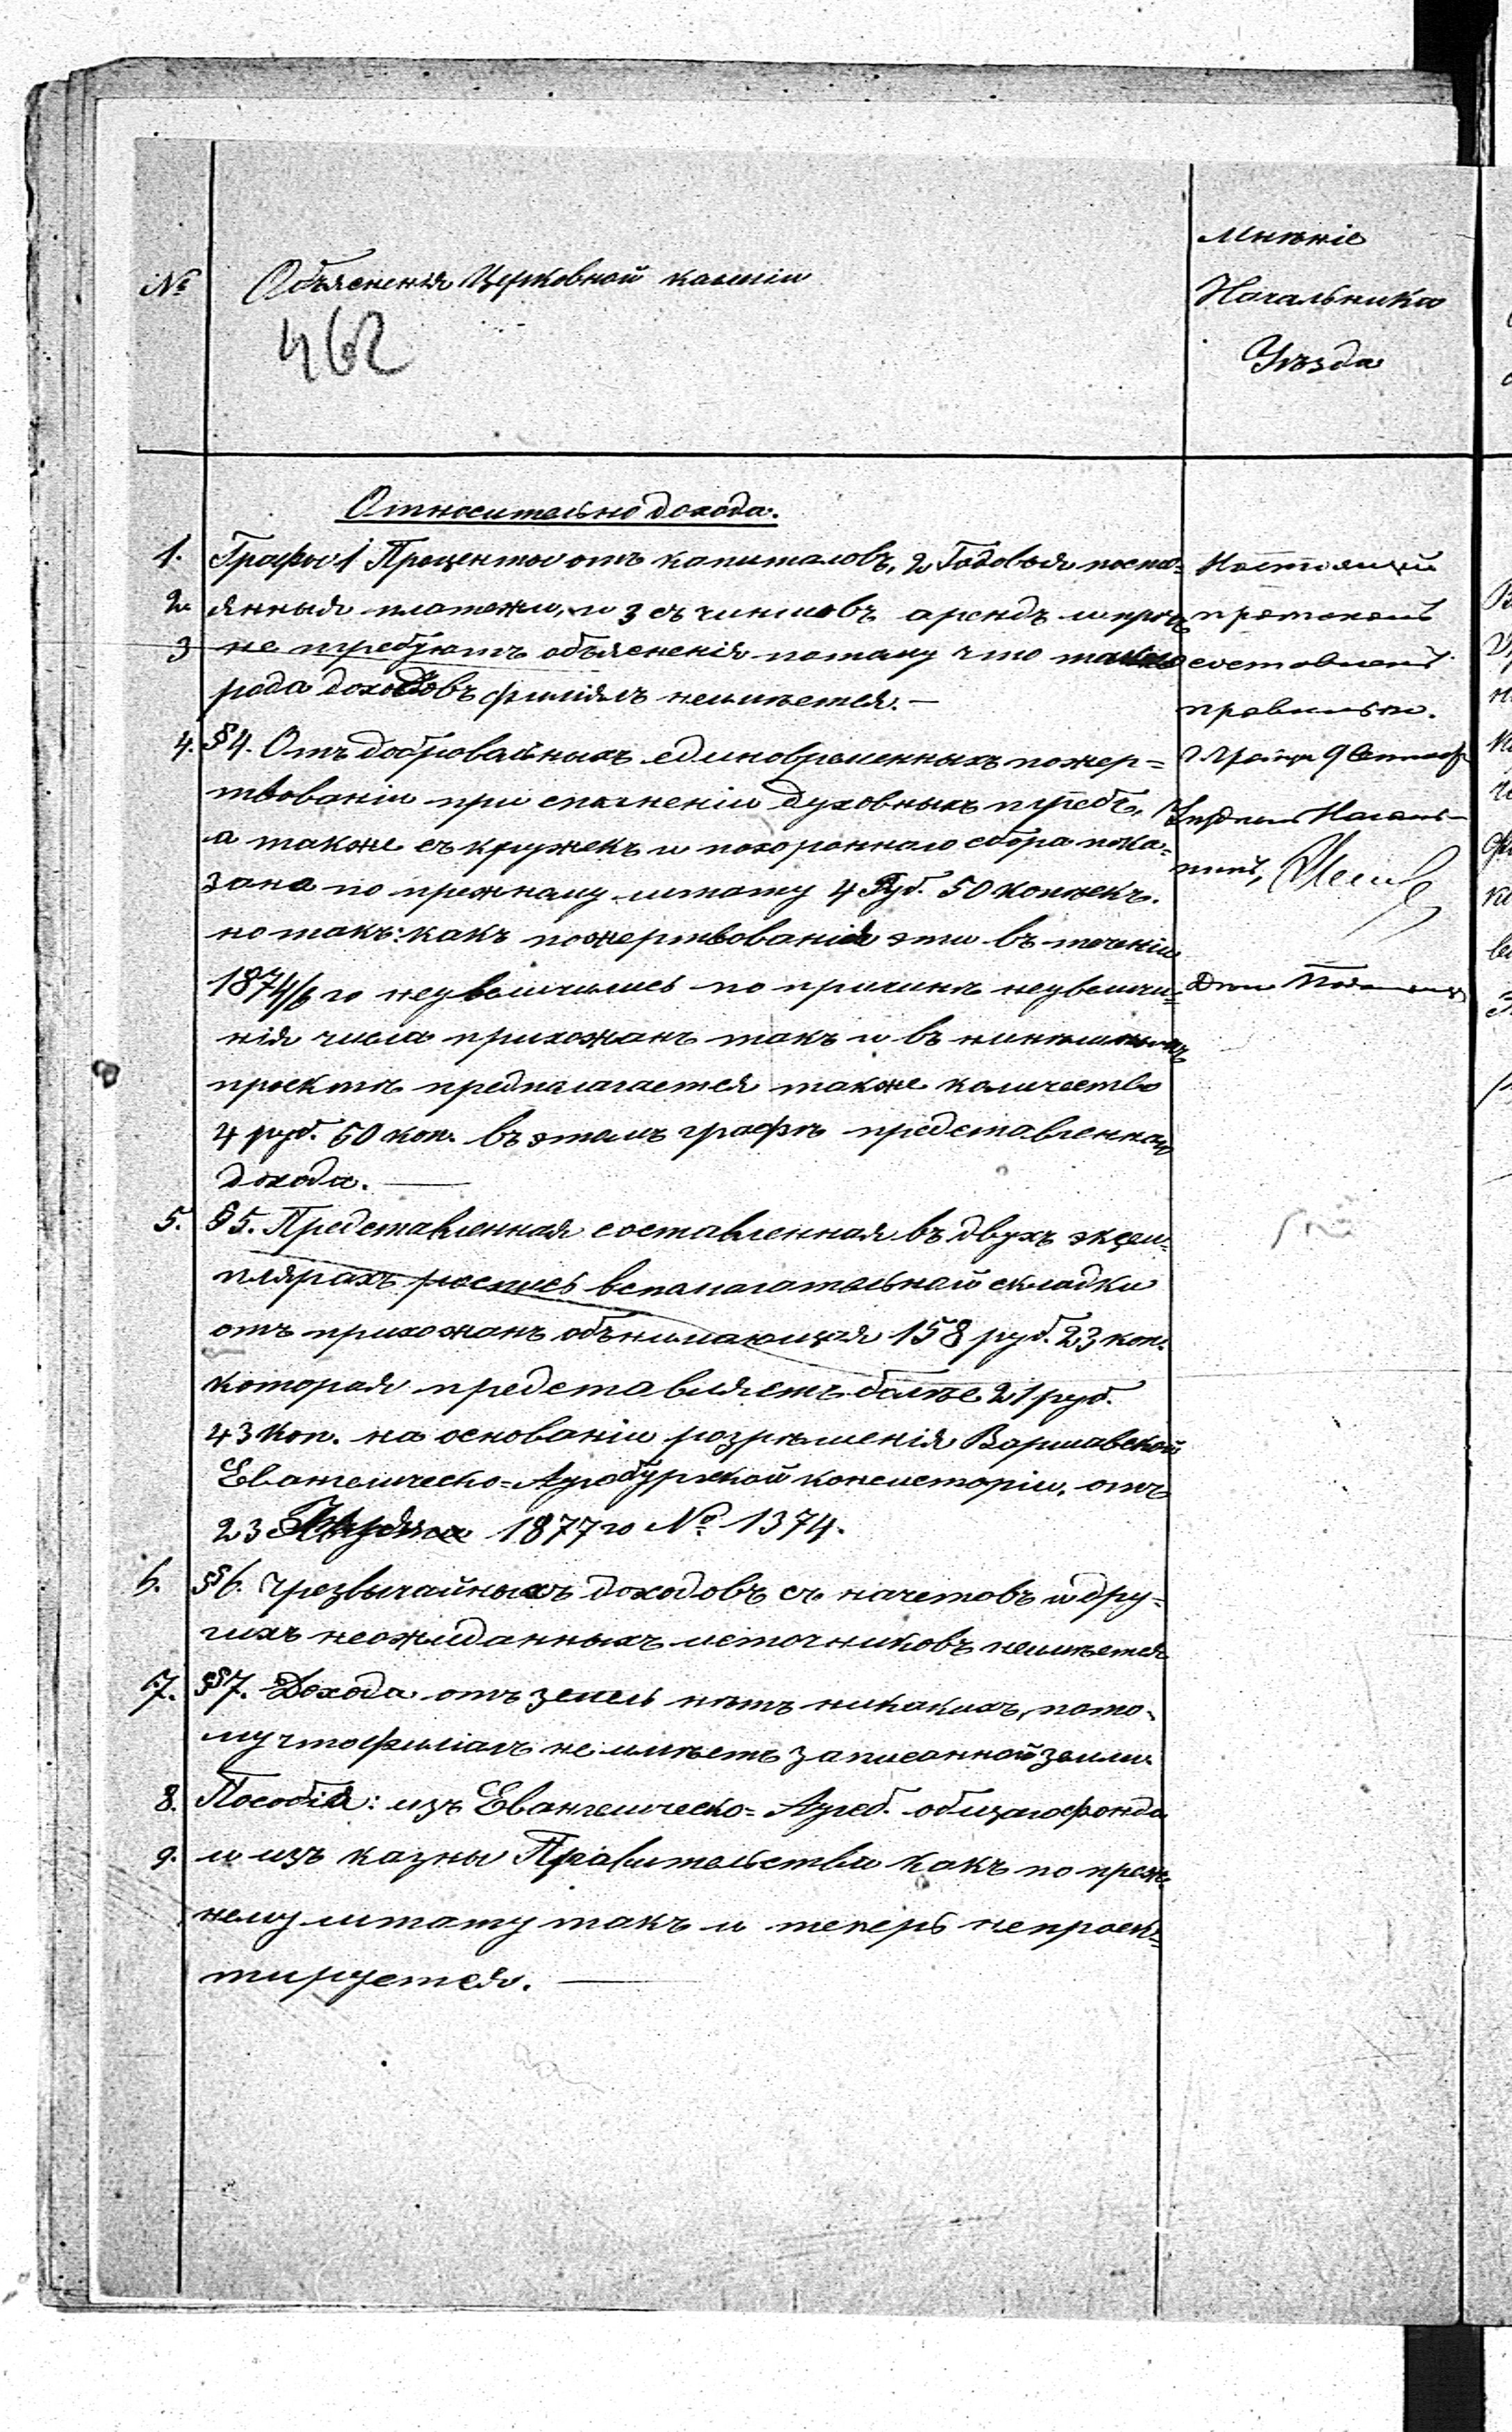 №
Объясненія Церковной
462
Мнѣніе
Начальника
Уѣзда
Относительно дохода.
1. Графы 1 Проценты отъ капиталовъ, 2 Годовыя посто=
2. янныя платежи, и 3 съ чиншовъ арендъ и проч
3 не требуютъ объясненія потому что такого
рода доходовъ филіялъ неимѣется.—
4. §4. Отъ добровольныхъ единовременныхъ пожер=
твованіи при духовныхъ требъ,
а также съ кружекъ и похороннаго сбора пока=
зана по прежнему штату 4 Руб. 50 копѣекъ.
но такъ какъ пожертвованія эти въ теченіи
187 го неувеличились по причинѣ неувеличе=
нія числа прихожанъ такъ и въ нынѣшнемъ
проектѣ предполагается также количество
4 руб. 50 коп. въ этомъ графѣ представленнаго
дохода.—
5. §5. Представленная составленная въ двухъ экзем=
плярахъ роспись вспомогательной складки
отъ прихожанъ обнимающая 158 руб. 23 коп.
которая представляетъ болѣе 21 руб.
43 коп. на основаніи розрѣшенія Варшавской
Евангелическо=Аугсбургской консисторіи. отъ
23 1877 го № 1374.
6. §6. Чрезвычайныхъ доходовъ съ начетовъ и дру=
гихъ неожиданныхъ источниковъ неимѣется
7. §7. Дохода отъ земель нѣтъ никакихъ, пото=
му что филіалъ не имѣетъ записанной земли
8. Пособія: изъ Евангелическо=Аугсб. общаго фонда
9. и изъ казны Правительства какъ по преж=
нему штату такъ и теперь непроек=
тируется.—
Настоящій
протоколъ
составленъ
правильно.